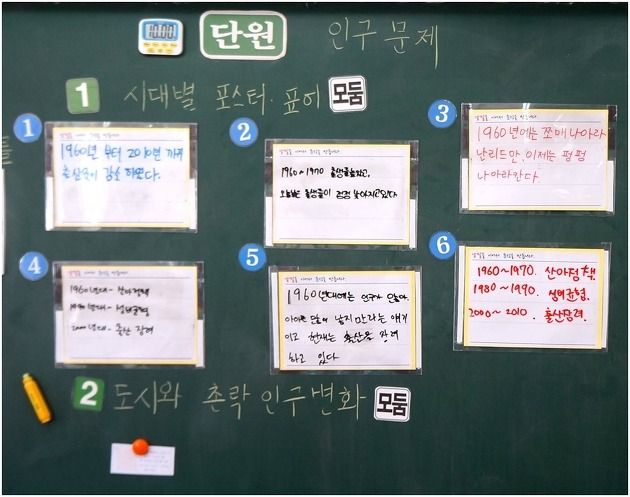 10:00
단원 인구 문제
1 시대별 포스터·표어 모둠
1
1960년 부터 2010년 까지
출산율이 감소 하였다.
2
1960~1970 출생률높았고,
오늘날은 출생률이 점점 낮아지고있다
3
1960년에는 쪼매 나아라
난리드만, 이제는 펑펑
나아라칸다.
4
1960년대- 산아정책
1990년대-
2000년대- 출산 장려
5
1960년대에는 인구가 많아
아이를 많이 낳지만라는 얘기
이고 현재는 출산을 장려
하고 있다
6
1960~1970. 산아정책
1980~1990.
2000~2010. 출산장려.
2 도시와 촌락 인구변화 모둠